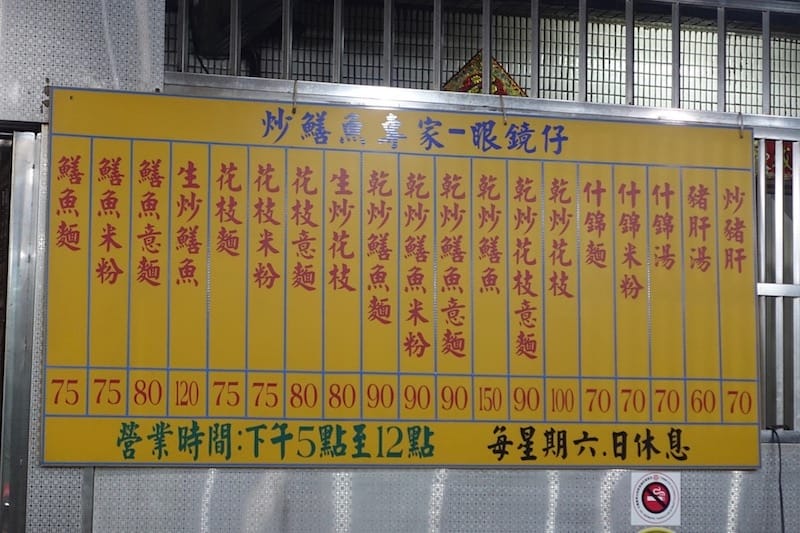 炒鱔魚專家一眼鏡仔
鱔魚麵 75
鱔魚米粉 75
鱔魚意麵 80
生炒鱔魚 120
花枝麵 75
花枝米粉 75
花枝意麵 80
生炒花枝 80
乾炒鱔魚麵 90
乾炒鱔魚米粉 90
乾炒鱔魚意麵 90
乾炒鱔魚 150
乾炒花枝意麵 90
乾炒花枝 100
什錦麵 70
什錦米粉 70
什錦湯 70
豬肝湯 60
炒豬肝 70
營業時間:下午5點至12點 每星期六.日休息